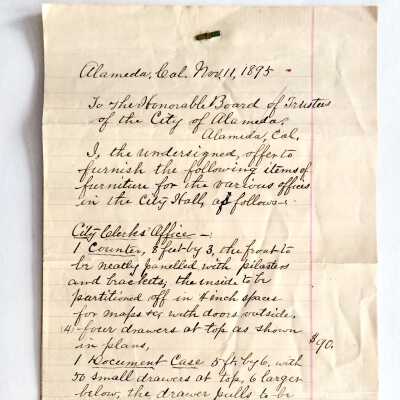 Alameda, Cal. Nov, 11, 1895
To The Honorable Board of Trustees
of the City of Alameda,
Alameda, Cal.
I, the undersigned, offer to
furnish the following items of
furniture for the various offices
in the City Hall, as follows:
City Clerks Office –
1 Counter, 8 feet by 3, the front to
be neatly panelled with pilasters
and brackets; the inside to be
partitioned off in 4 inch spaces
for maps &c with doors outside.
(4) four drawers at top as shown
in plans, $90.
1 Document Case 5 ft. by 6, with
50 small drawers at top, 6 larger
below, the drawer pulls to be